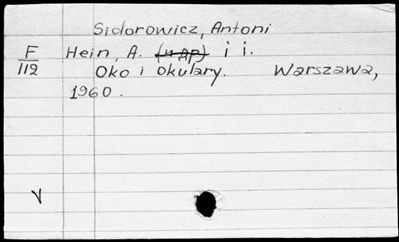 Sidorowicz, Antoni
F Hein, A. (и др) i i.
112 Oko i okulary. Warszawa,
1960.
V